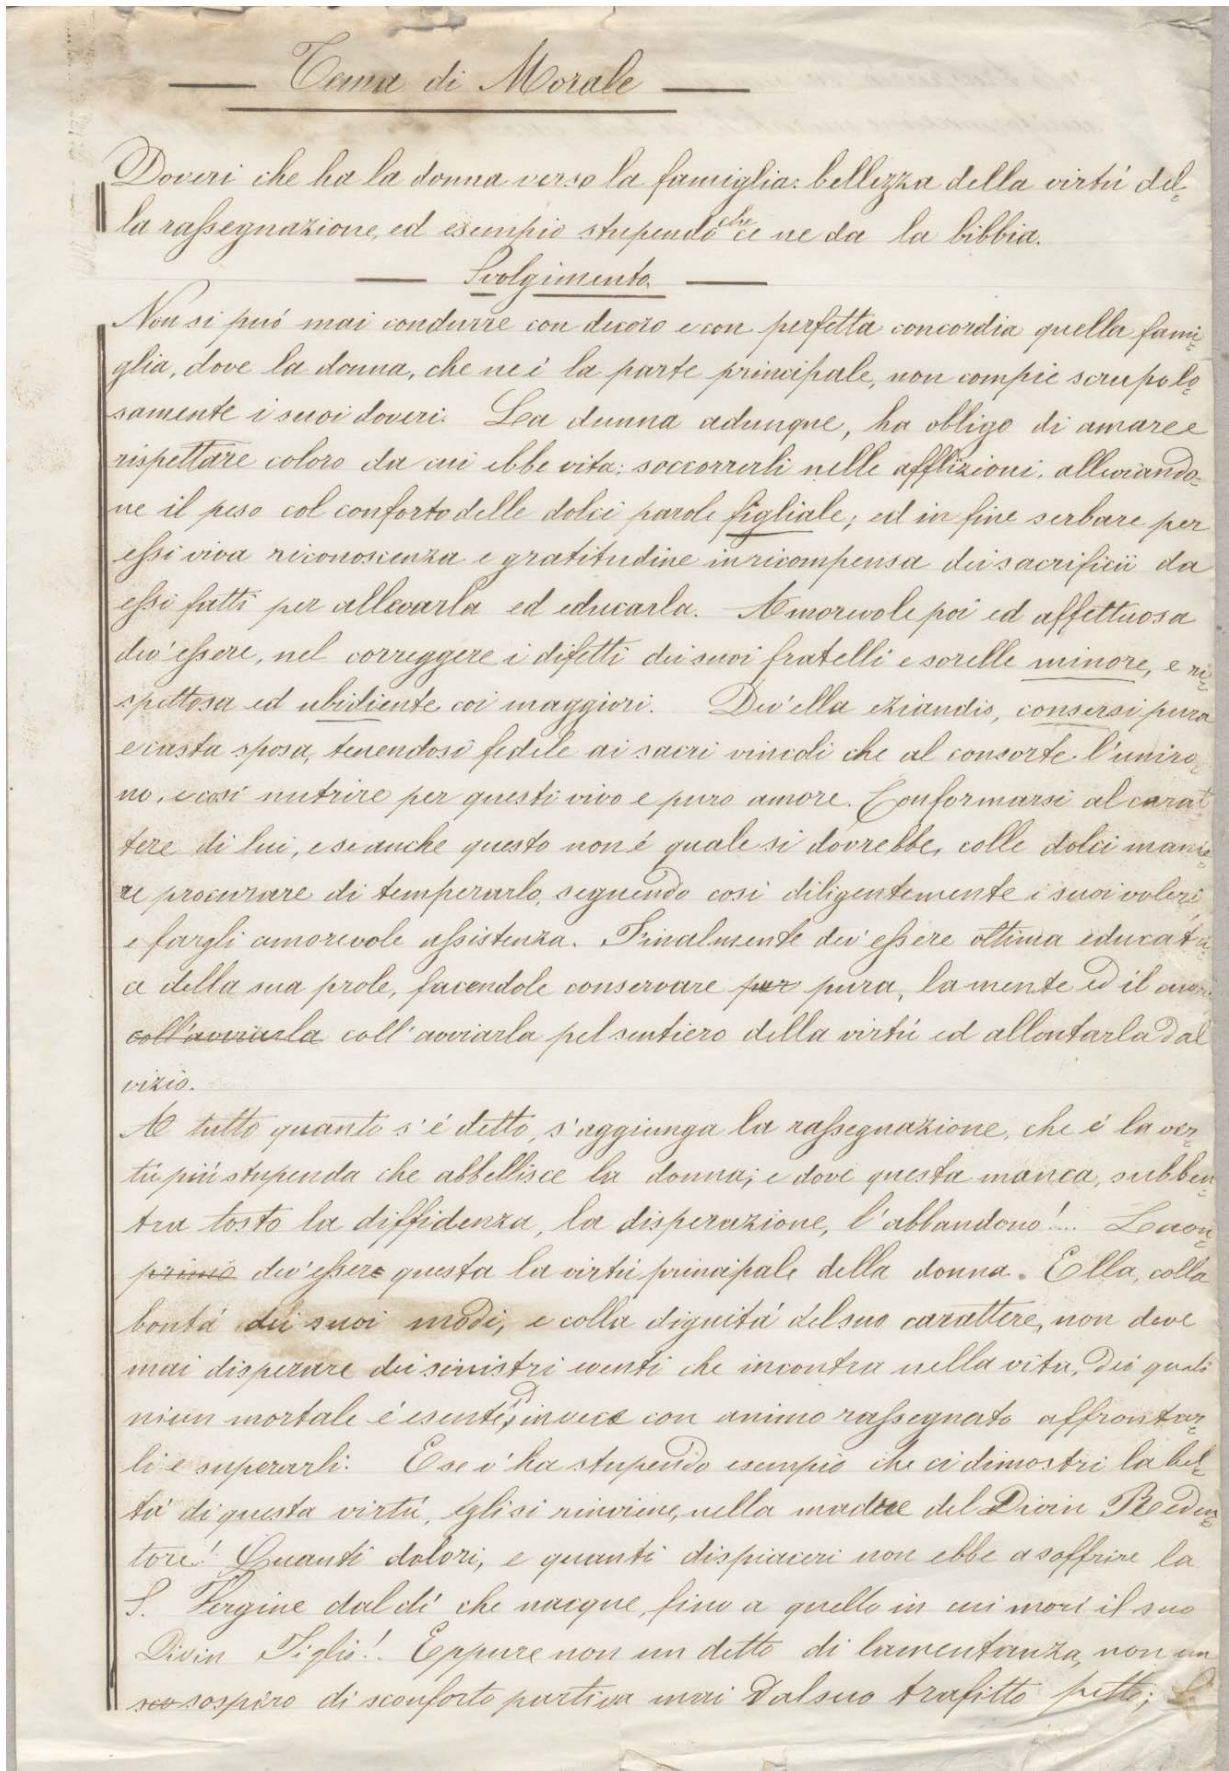 Tema di Morale
Doveri che ha la donna verso la famiglia: bellezza della virtú del-
la rassegnazione, ed esempio stupendo che ce ne da la bibbia.
Svolgimento.
Non si puó mai condurre con decoro e con perfetta concordia quella fami-
glia, dove la donna, che ne é la parte principale, non compie scrupolo-
samente i suoi doveri. La donna adunque, ha obligo di amare e
rispettare coloro da cui ebbe vita: soccorrerli nelle afflizioni, alleviando-
ne il peso col conforto delle dolci parole figliale; ed in fine serbare per
essi viva riconoscenza e gratitudine in ricompensa dei sacrificii da
essi fatti per allevarla ed educarla. Amorevole poi ed affettuosa
dev'essere, nel correggere i difetti dei suoi fratelli e sorelle minore, e ri-
spettosa ed ubidiente coi maggiori. Dev'ella eziandio, consersi pura
e casta sposa, tenendosi fedele ai sacri vincoli che al consorte l'uniro-
no, e cosi nutrire per questi vivo e puro amore. Conformarsi al carat
tere di lui, e se anche questo non é quale si dovrebbe, colle dolci manie-
re procurare di temperarlo, seguendo cosi diligentemente i suoi voleri,
e fargli amorevole assistenza. Finalmente dev'essere ottima educatri-
ce della sua prole, facendole conservare pur pura, la mente ed il cuore
coll'avviarla coll'avviarla pel sentiero della virtú ed allontarla dal
vizio.
A tutto quanto s'é detto, s'aggiunga la rassegnazione, che é la vir-
tú piú stupenda che abbellisce la donna; e dove questa manca, subben-
tra tosto la diffidenza, la disperazione, l'abbandono!... Laon-
primo dev'essere questa la virtú principale della donna. Ella, colla
bontá dei suoi modi, e colla dignitá del suo carattere, non deve
mai disperare dei sinistri eventi che incontra nella vita, dei quali
niun mortale é esente, invece con animo rassegnato affrontar-
li e superarli. E se v'ha stupendo esempio che ci dimostri la bel-
tá di questa virtú, egli si rinviene, nella madre del Divin Reden-
tore! Quanti dolori, e quanti dispiaceri non ebbe a soffrire la
S. Vergine dal dí che nacque, fino a quello in cui morí il suo
Divin Figlio! Eppure non un detto di lamentanza, non un
sco sospiro di sconforto partiva mai dal suo trafitto petto;